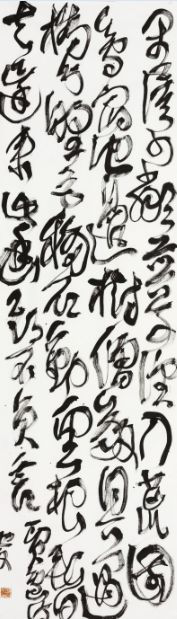 閒居少鄰並草徑入荒園
鳥宿池邊樹僧敲月下門過
橋分野色移石動雲根暫
去還來此幽期不負言賈島詩